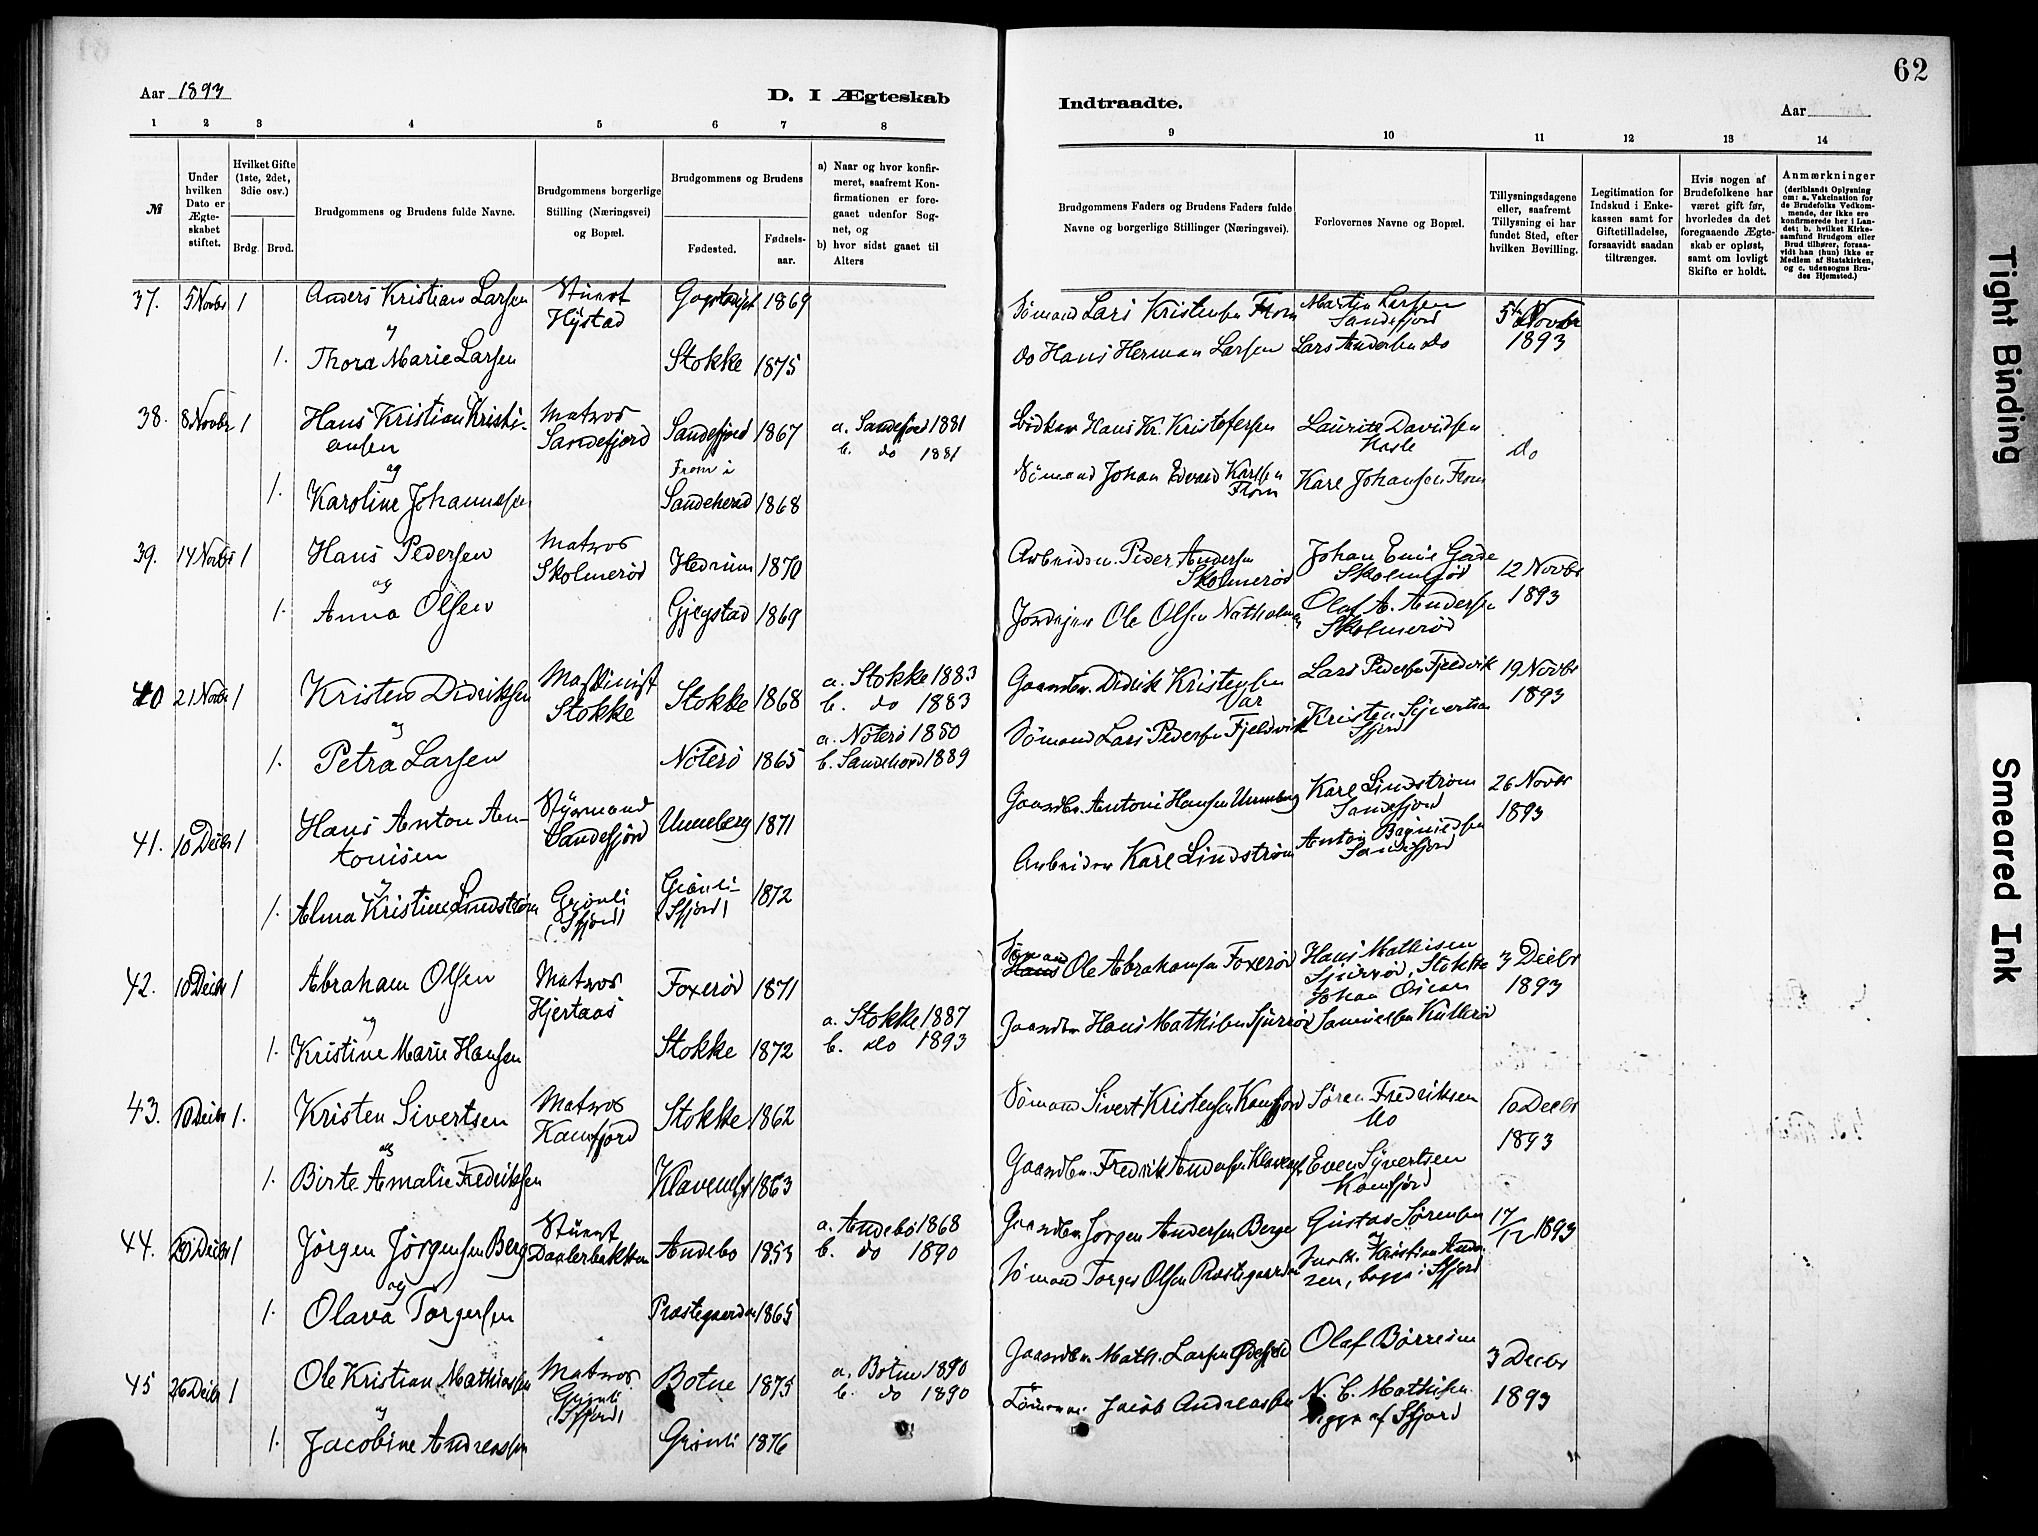 62
Aar 1893
D. I Ægteskab
Indtraadte.
Aar
1 2 3 4 5 6 7 8
9 10 11 12 13 14
№
Under hvilken Dato er Ægteskabet stiftet.
Hvilket Gifte (1ste, 2det, 3die osv.)
Brdg. Brud.
Brudgommens og Brudens fulde Navne.
Brudgommens borgerlige Stilling (Næringsvei) og Bopæl.
Brudgommens og Brudens
Fødested.
Fødselsaar.
a) Naar og hvor konfirmeret, saafremt Konfirmationen er foregaaet udenfor Sognet, og
b) hvor sidst gaaet til Alters
Brudgommens Faders og Brudens Faders fulde Navne og borgerlige Stillinger (Næringsvei).
Forlovernes Navne og Bopæl.
Tillysningsdagene eller, saafremt Tillysning ei har fundet Sted, efter hvilken Bevilling.
Legitimation for Indskud i Enkekassen samt for Giftetilladelse, forsaavidt saadan tiltrænges.
Hvis nogen af Brudefolkene har været gift før, hvorledes da det foregaaende Ægteskab er opløst, samt om lovligt Skifte er holdt.
Anmærkninger
(deriblandt Oplysning om: a. Vakcination for de Brudefolks Vedkommende, der ikke ere konfirmerede her i Landet; b. hvilket Kirkesamfund Brudgom eller Brud tilhører, forsaavidt han (hun) ikke er Medlem af Statskirken, og c. udensogns Brudes Hjemsted.)
37. 5 Novbr 1 Anders Kristian Larsen Stuert Hystad 1869
Sømand Lars Kristensen Fram Martin Larsen Sandefjord 5te Novbr 1893
og
1. Thora Marie Larsen Stokke 1875
do Hans Herman Larsen Lars Andersen do
38. 8 Novbr 1 Hans Kristian Kristiansen Matros Sandefjord Sandefjord 1867 a. Sandefjord 1881 b. do 1881
Hans Kr. Kristofersen Laurits Davidsen do
og
1. Karoline Johannesen Fram i Sandeherred 1868
Sømand Johan Edvard Karlsen Fram Karl Johansen Fram
39. 14 Novbr 1 Hans Pedersen Matros Skolmerød Hedrum 1870
Arbeider Peder Andersen Skolmerød Johan Emil Skolmerød 12 Novbr 1893
og
1. Anna Olsen Gjegstad 1869
Jordejer Ole Olsen Olaf A. Andersen Skolmerød
40 21 Novbr 1 Kristen Didriksen Maskinist Stokke Stokke 1868 a. Stokke 1883 b. do 1883
Gaardbr. Didrik Kristensen Var Lars Pedersen Fjeldvik 19 Novbr 1893
og
1. Petra Larsen Nøterø 1865 a. Nøterø 1880 b. Sandeherred 1889
Sømand Lars Pedersen Fjeldvik Kristen Syvertsen Sfjord
41. 10 Decbr 1 Hans Anton Antonisen Styrmand Sandefjord Unneberg 1871
Gaardbr. Antoni Hansen Unneberg Karl Lindstrøm Sandefjord 26 Novbr 1893
og
1. Alma Kristine Lindstrøm Grønli (Sfjord) Grønli (Sfjord) 1872
Arbeider Karl Lindstrøm Anton Sandefjord
42. 10 Decbr 1 Abraham Olsen Matros Hjertaas Foxerød 1871
Sømand Hans Ole Abrahamsen Foxerød Hans Mathisen Sjuerød, Stokke 3 Decbr 1893
og
1. Kristine Marie Hansen Stokke 1872 a. Stokke 1887 b. do 1893
Gaardbr. Hans Mathisen Sjuerød Johan Oscar Samuelsen Kullerød
43. 10 Decbr 1. Kristen Sivertsen Matros Kamfjord Stokke 1862
Sømand Sivert Kristensen Kamfjord Søren Fredriksen Mo 10 Decbr 1893
og
1. Birte Amalie Fredriksen Klavenes 1863
Gaardbr. Fredrik Andersen Klavenes Even Syvertsen Kamfjord
44. 20 Decbr 1 Jørgen Jørgensen Berg Stuert Daulerbakken Andebo 1853 a. Andebo 1868 b. do 1890
Gaardbr. Jørgen Andersen Berge Gustav Sørensen 17/12 1893
og
1. Olava Torgersen Præstegaarden 1865
Sømand Torger Olsen Præstegaarden Kristian i Sfjord
45 26 Decbr 1 Ole Kristian Mathiasen Matros Grønli (Sfjord) Botne 1875 a. Botne 1890 b. do 1890
Gaardbr. Math. Larsen Olaf Børresen 3 Decbr 1893
og
1. Jacobine Andreassen Grønli 1876
Tømmerm. Jacob Andreassen N. C. Mathisen begge af Sfjord
Tight Binding
Smeared Ink